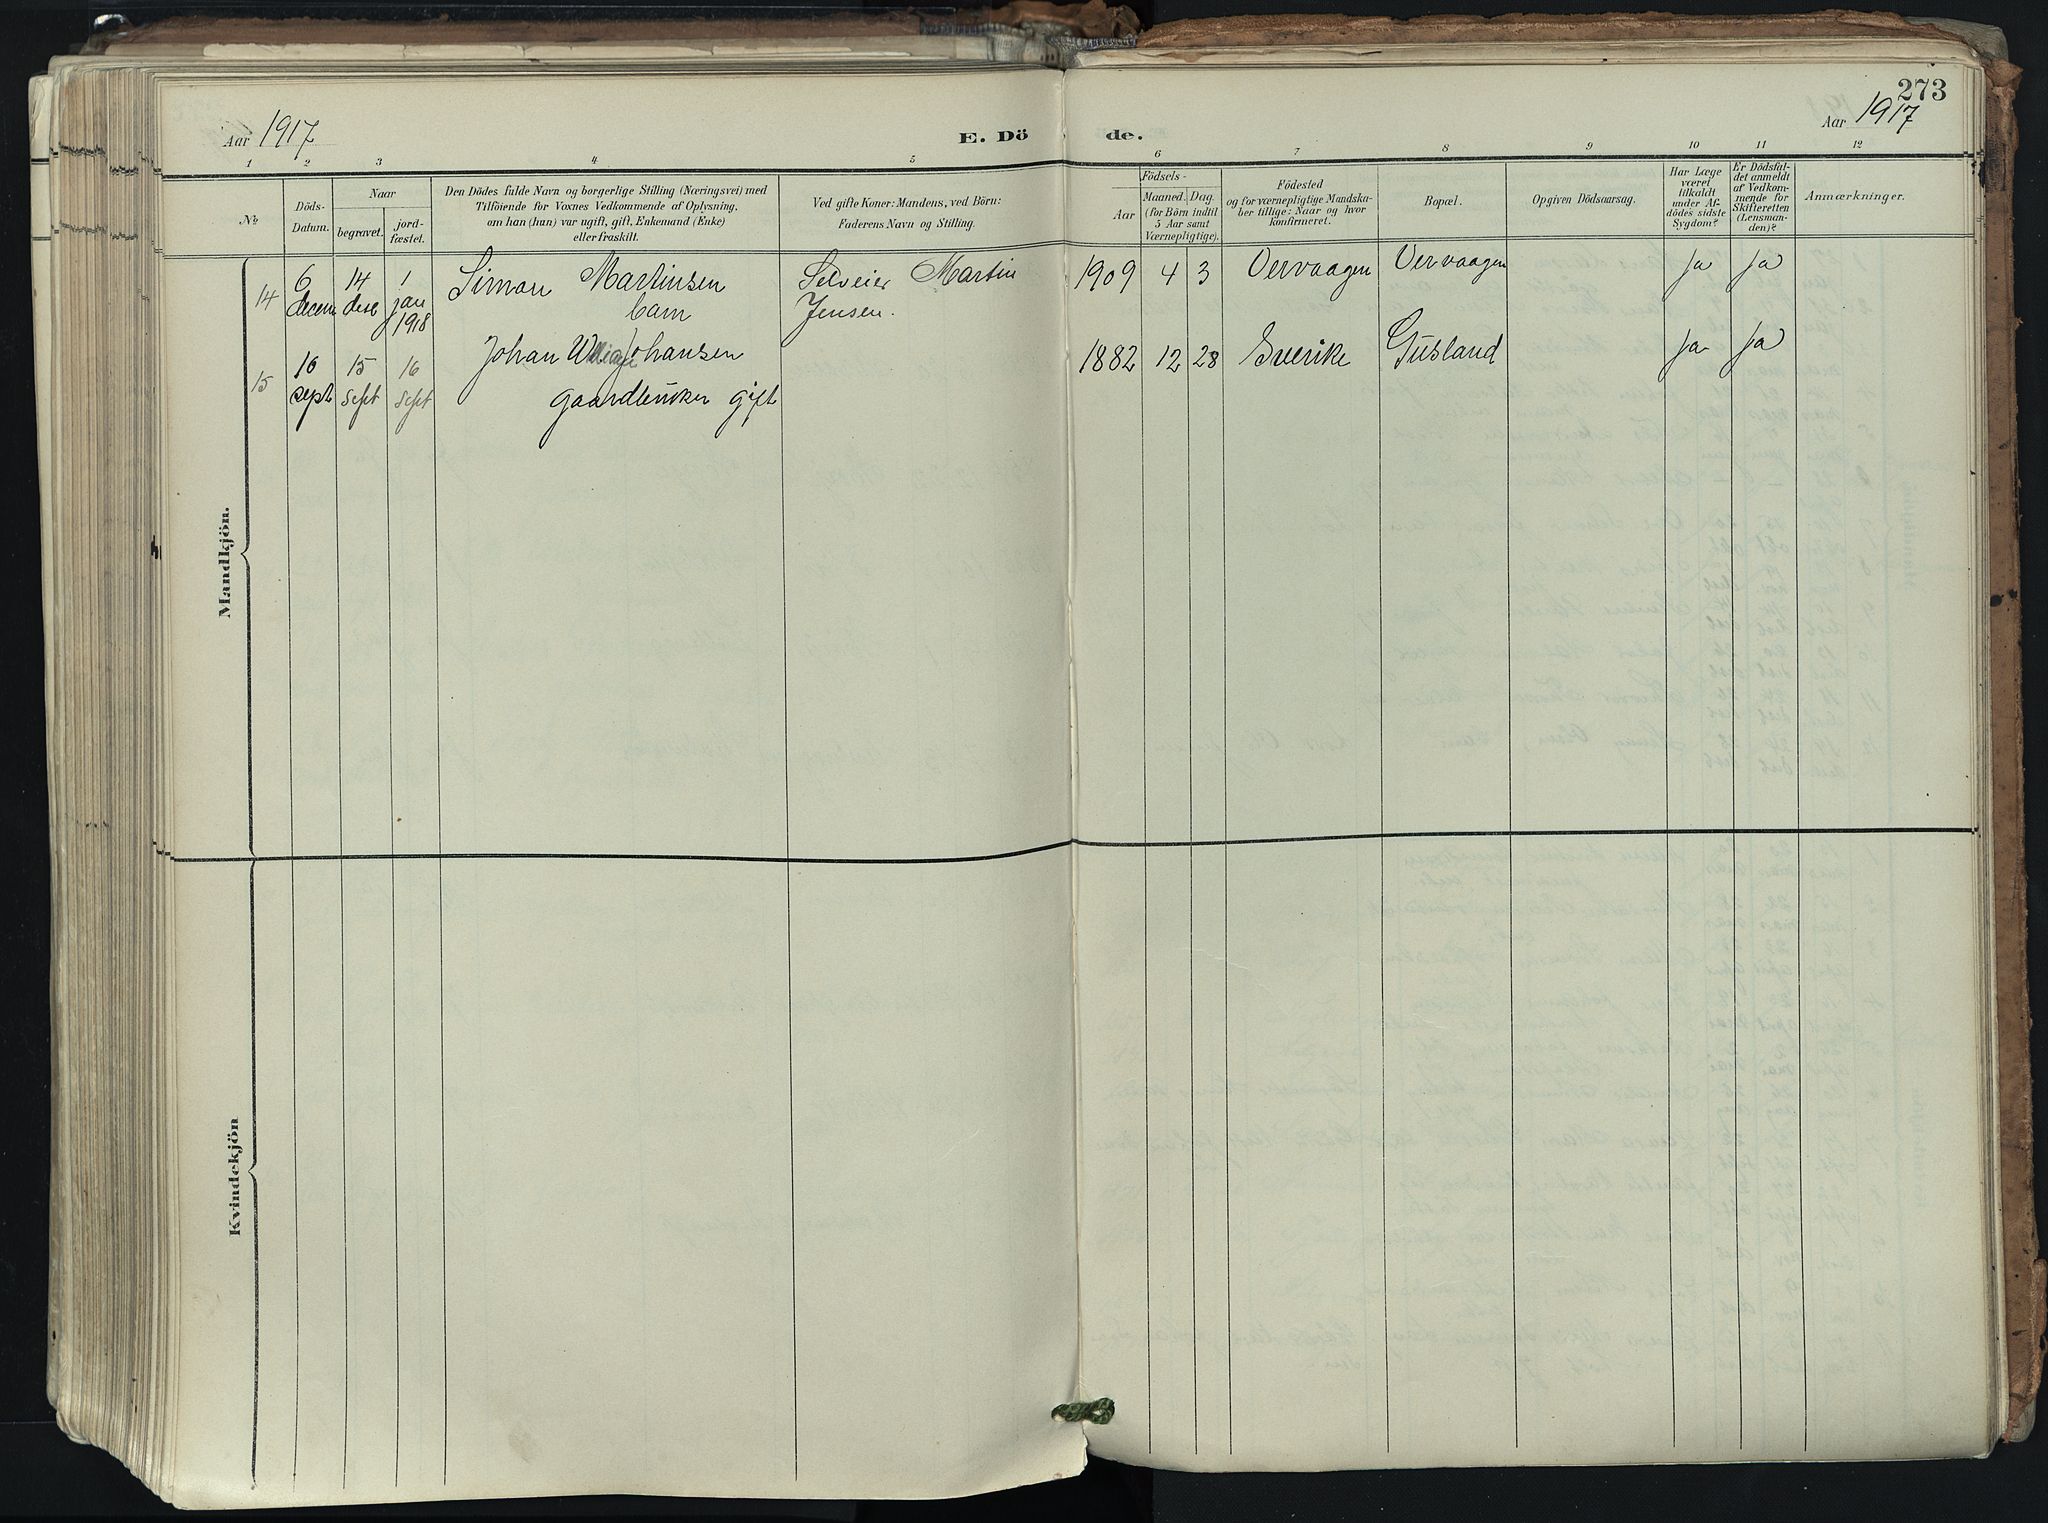 273
Aar 1917
E. Dö de.
Aar 1917
1 2 3 4 5 6 7 8 9 10 11 12
No
Döds-
Datum.
Naar
begravet.
jord-
fæstet.
Den Dödes fulde Navn og borgerlige Stilling (Næringsvei) med
Tilföiende for Voxnes Vedkommende af Oplysning,
om han (hun) var ugift, gift, Enkemand (Enke)
eller fraskilt.
Ved gifte Koner: Mandens, ved Börn:
Faderens Navn og Stilling.
Födsels-
Aar
Maaned. Dag.
(for Börn indtil
5 Aar samt
Værnepligtige).
Födested
og for værnepligtige Mandska-
ber tillige: Naar og hvor
konfirmeret.
Bopæl.
Opgiven Dödsaarsag.
Har Læge
været
tilkaldt
under Af-
dödes sidste
Sygdom?
Er Dödsfal-
det anmeldt
af Vedkom-
mende for
Skifteretten
(Lensman-
den)?
Anmærkninger.
Mandkjön.
14
6
decem
14
des
1
jan
1918
Simon Martinsen
barn
Selveier Martin
Jensen.
1909 4 3 Vervaagen Vervaagen Ja Ja
15
10
sept
15
sept
16
sept
Johan Johansen
gaardbruker gift
1882 12 28 Sverike Gusland Ja Ja
Kvindekjön